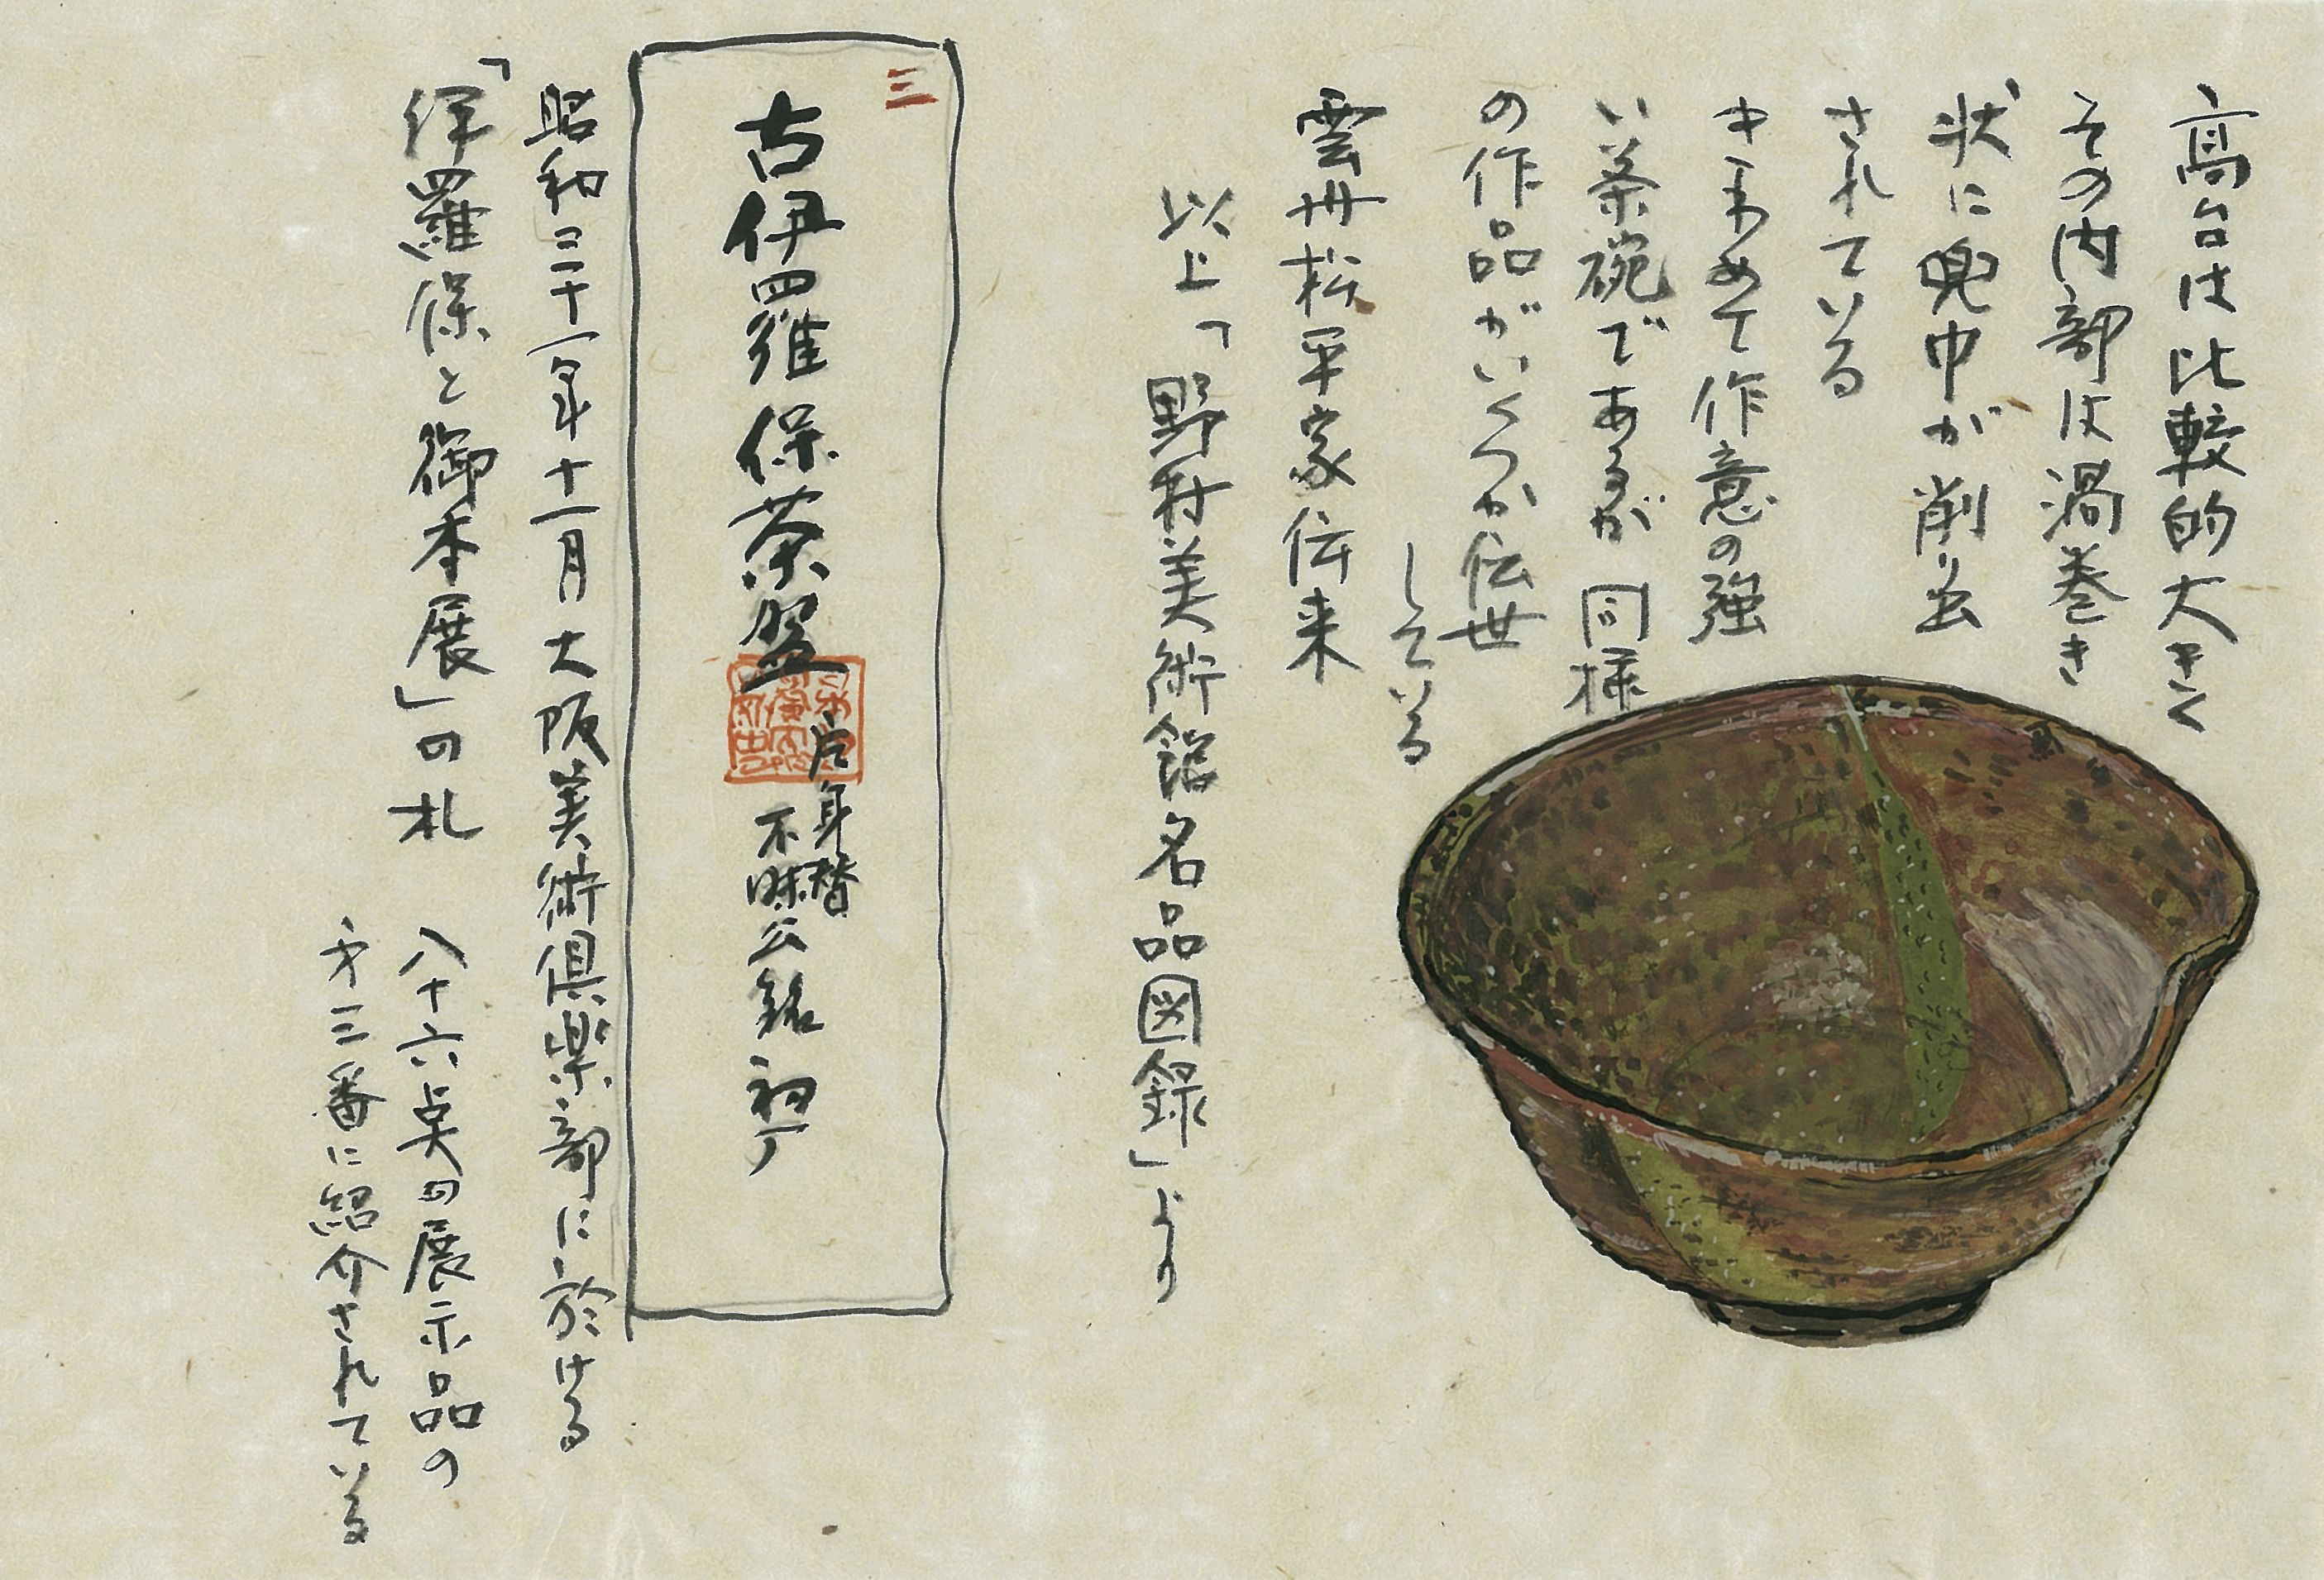 高台は比較的大きく
その内部は渦巻き
状に兜巾が削り出
されている
きわめて作意の強
い茶碗であるが同様
の作品がいくつか伝世
している
雲州松平家伝来
以上「野村美術館名品図録」より
三
古伊羅保茶盌
片身替
不昧公銘 初丁
昭和三十一年十一月大阪美術倶楽部に於ける
「伊羅保と御本展」の札
八十六点の展示品の
才三番に紹介されている